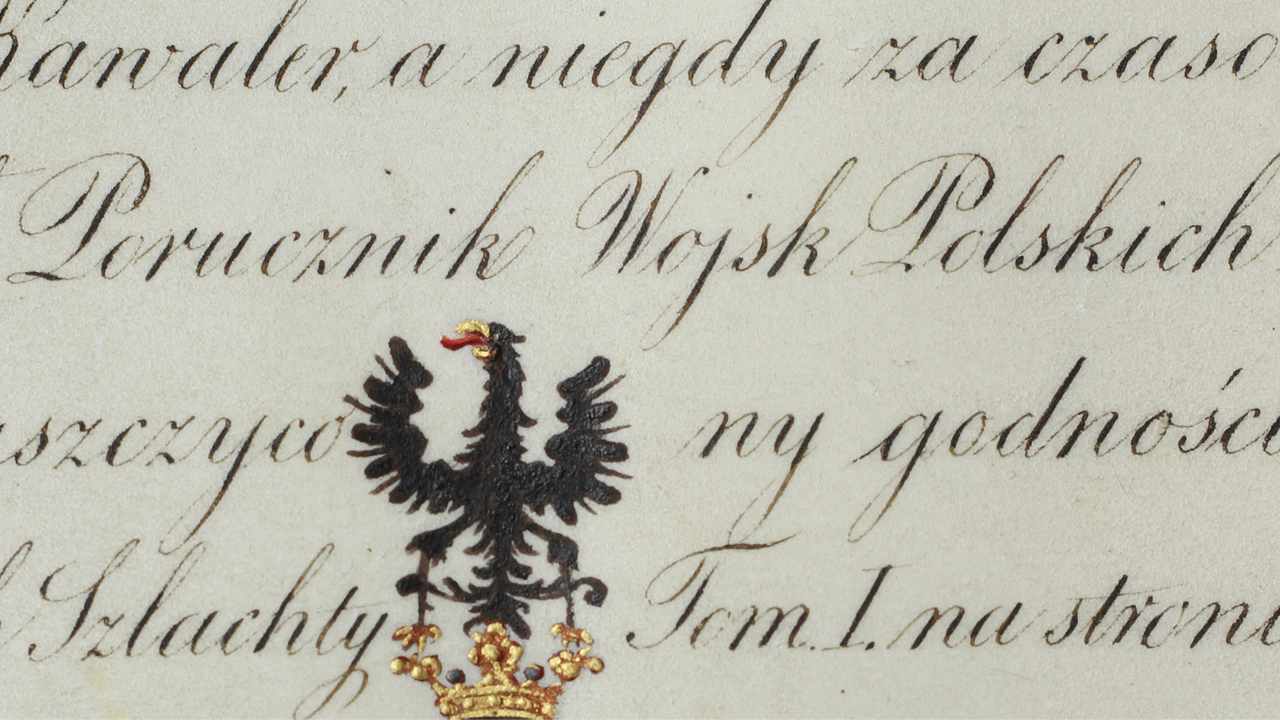 Kawaler, a niegdy za czaso
Porucznik Wojsk Polskich
szczyco ny godnośc
Szlachty Tom. I. na stroni